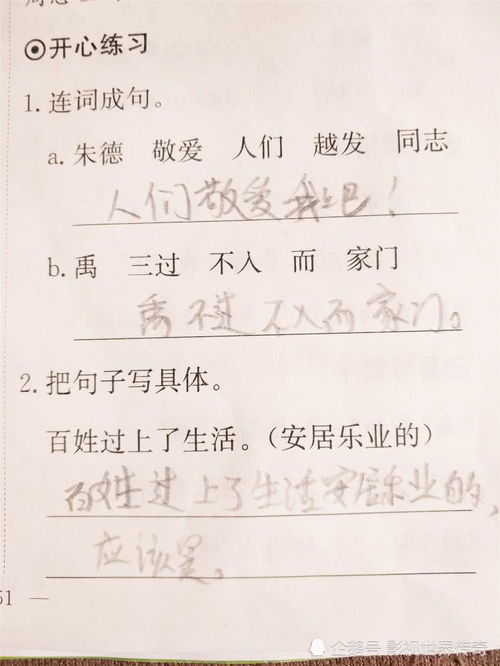 ⊙开心练习
1.连词成句。
a.朱德 敬爱 人们 越发 同志
人们敬爱我吧!
b.禹 三过 不入 而 家门
禹不过不入而家门。
2.把句子写具体。
百姓过上了生活。(安居乐业的)
百姓过上了生活安居乐业的,
应该是。
51
企鹅号 影视世界传奇